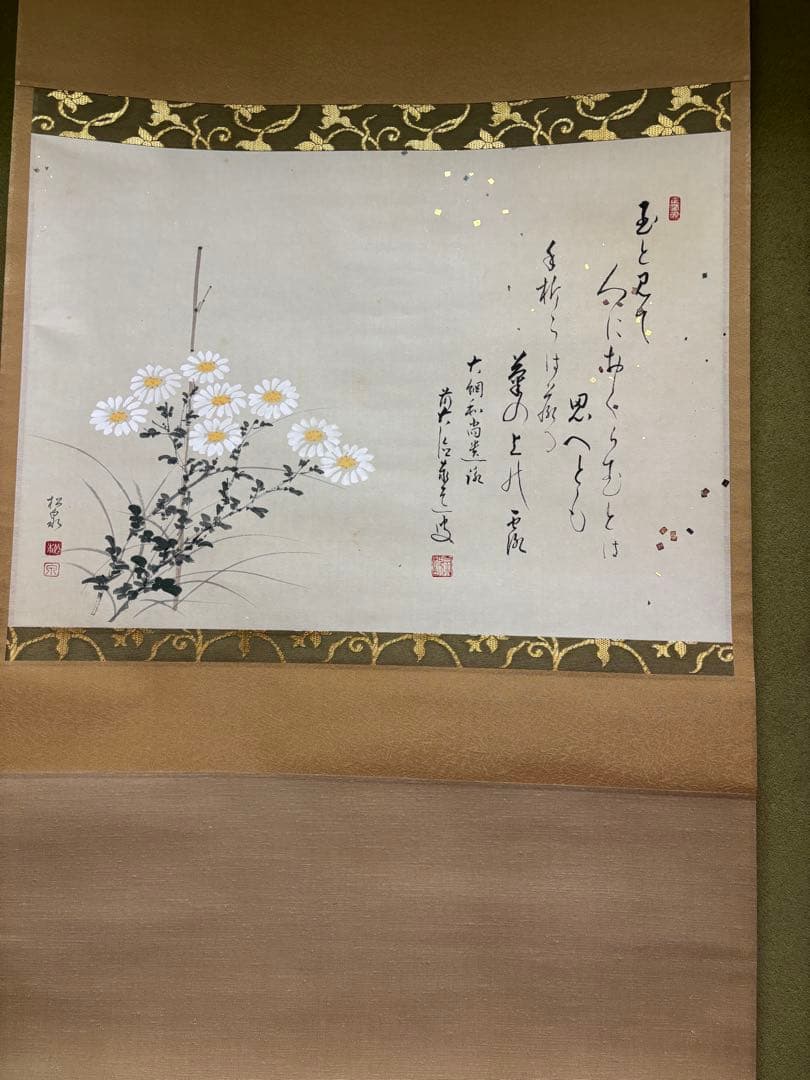 玉と見て
人におくらむとは
思へとも
手折らは落る
菊の上の露
大綱和尚遺詠
前大徳
松泉